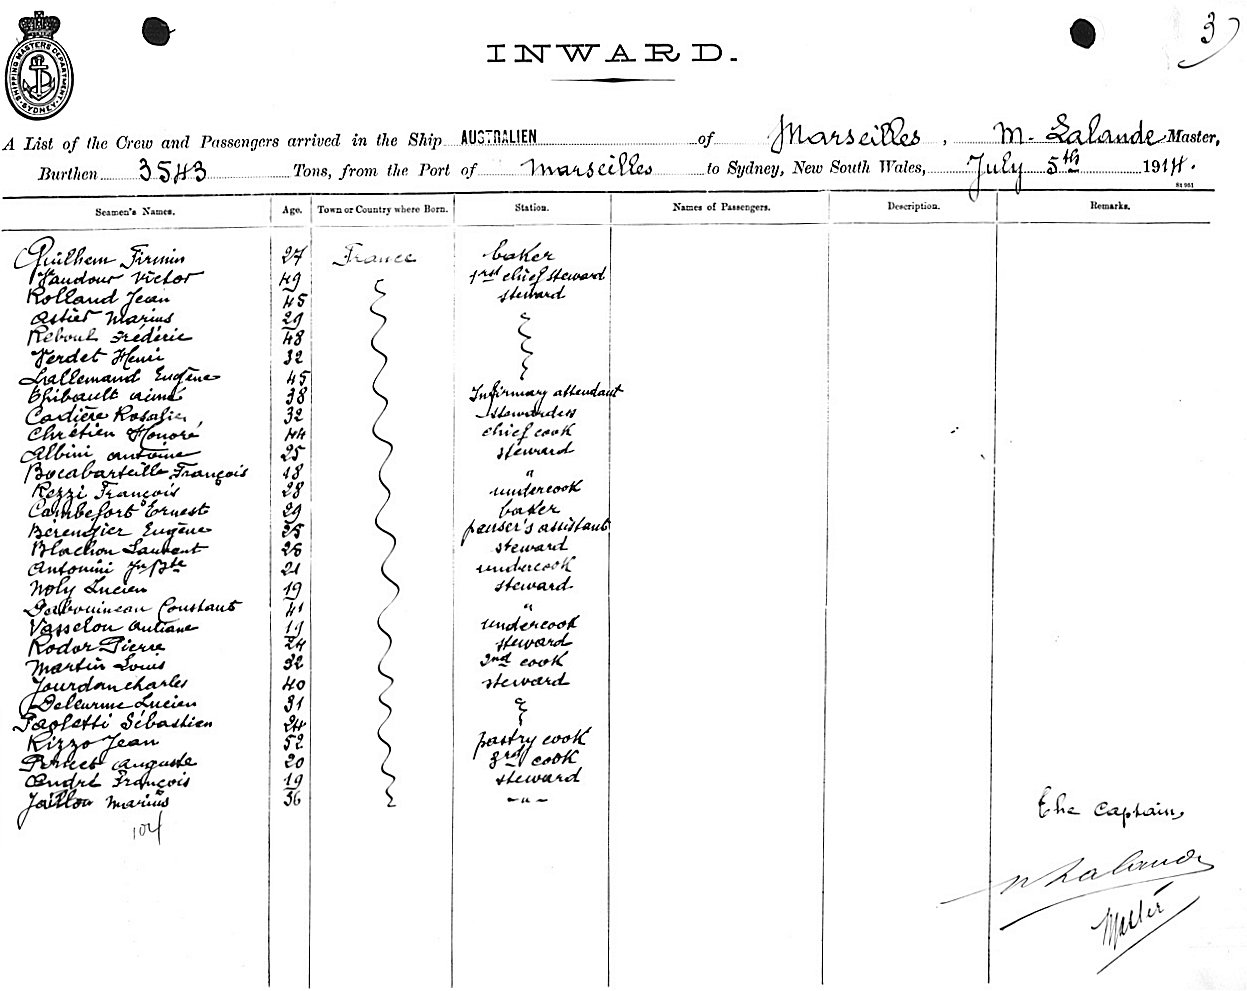 3
INWARD.
SHIPPING MASTERS DEPARTMENT SYDNEY
A List of the Crew and Passengers arrived in the Ship AUSTRALIEN of Marseilles, M. Lalande Master,
Burthen 3543 Tons, from the Port of Marseilles to Sydney, New South Wales, July 5th 1914.
Seamen's Names. Age. Town or Country where Born. Station. Names of Passengers. Description. Remarks.
Guilhem Firmin 27 France baker
Vandour Victor 49 1rst chief steward
Rolland Jean 45 steward
Astier Marius 29
Reboul Frédéric 48
Verdet Henri 32
Lallemand Eugène 45
Thibault Aimé 38 Infirmary attendant
Cardière Rosalie 32 stewardess
Chrétien Honoré 44 chief cook
Albini Antoine 25 steward
Bocabarteille François 18 "
Rezzi François 28 undercook
Cambefort Ernest 29 baker
Berengier Eugène 25 pauser's assistant
Blachon Laurent 26 steward
Antonini Jn Bte 21 undercook
Noly Lucien 19 steward
Constant 41 "
Vasselon 19 undercook
Rodor Pierre 24 steward
Martin Louis 32 2nd cook
Jourdan Charles 40 steward
Deleurme Lucien 31
Paoletti Sébastien 24
Rizzo Jean 52 pastry cook
Auguste 20 3rd cook
André François 19 steward
Jaillon Marius 36 - " -
104
The Captain,
M Lalande
Master